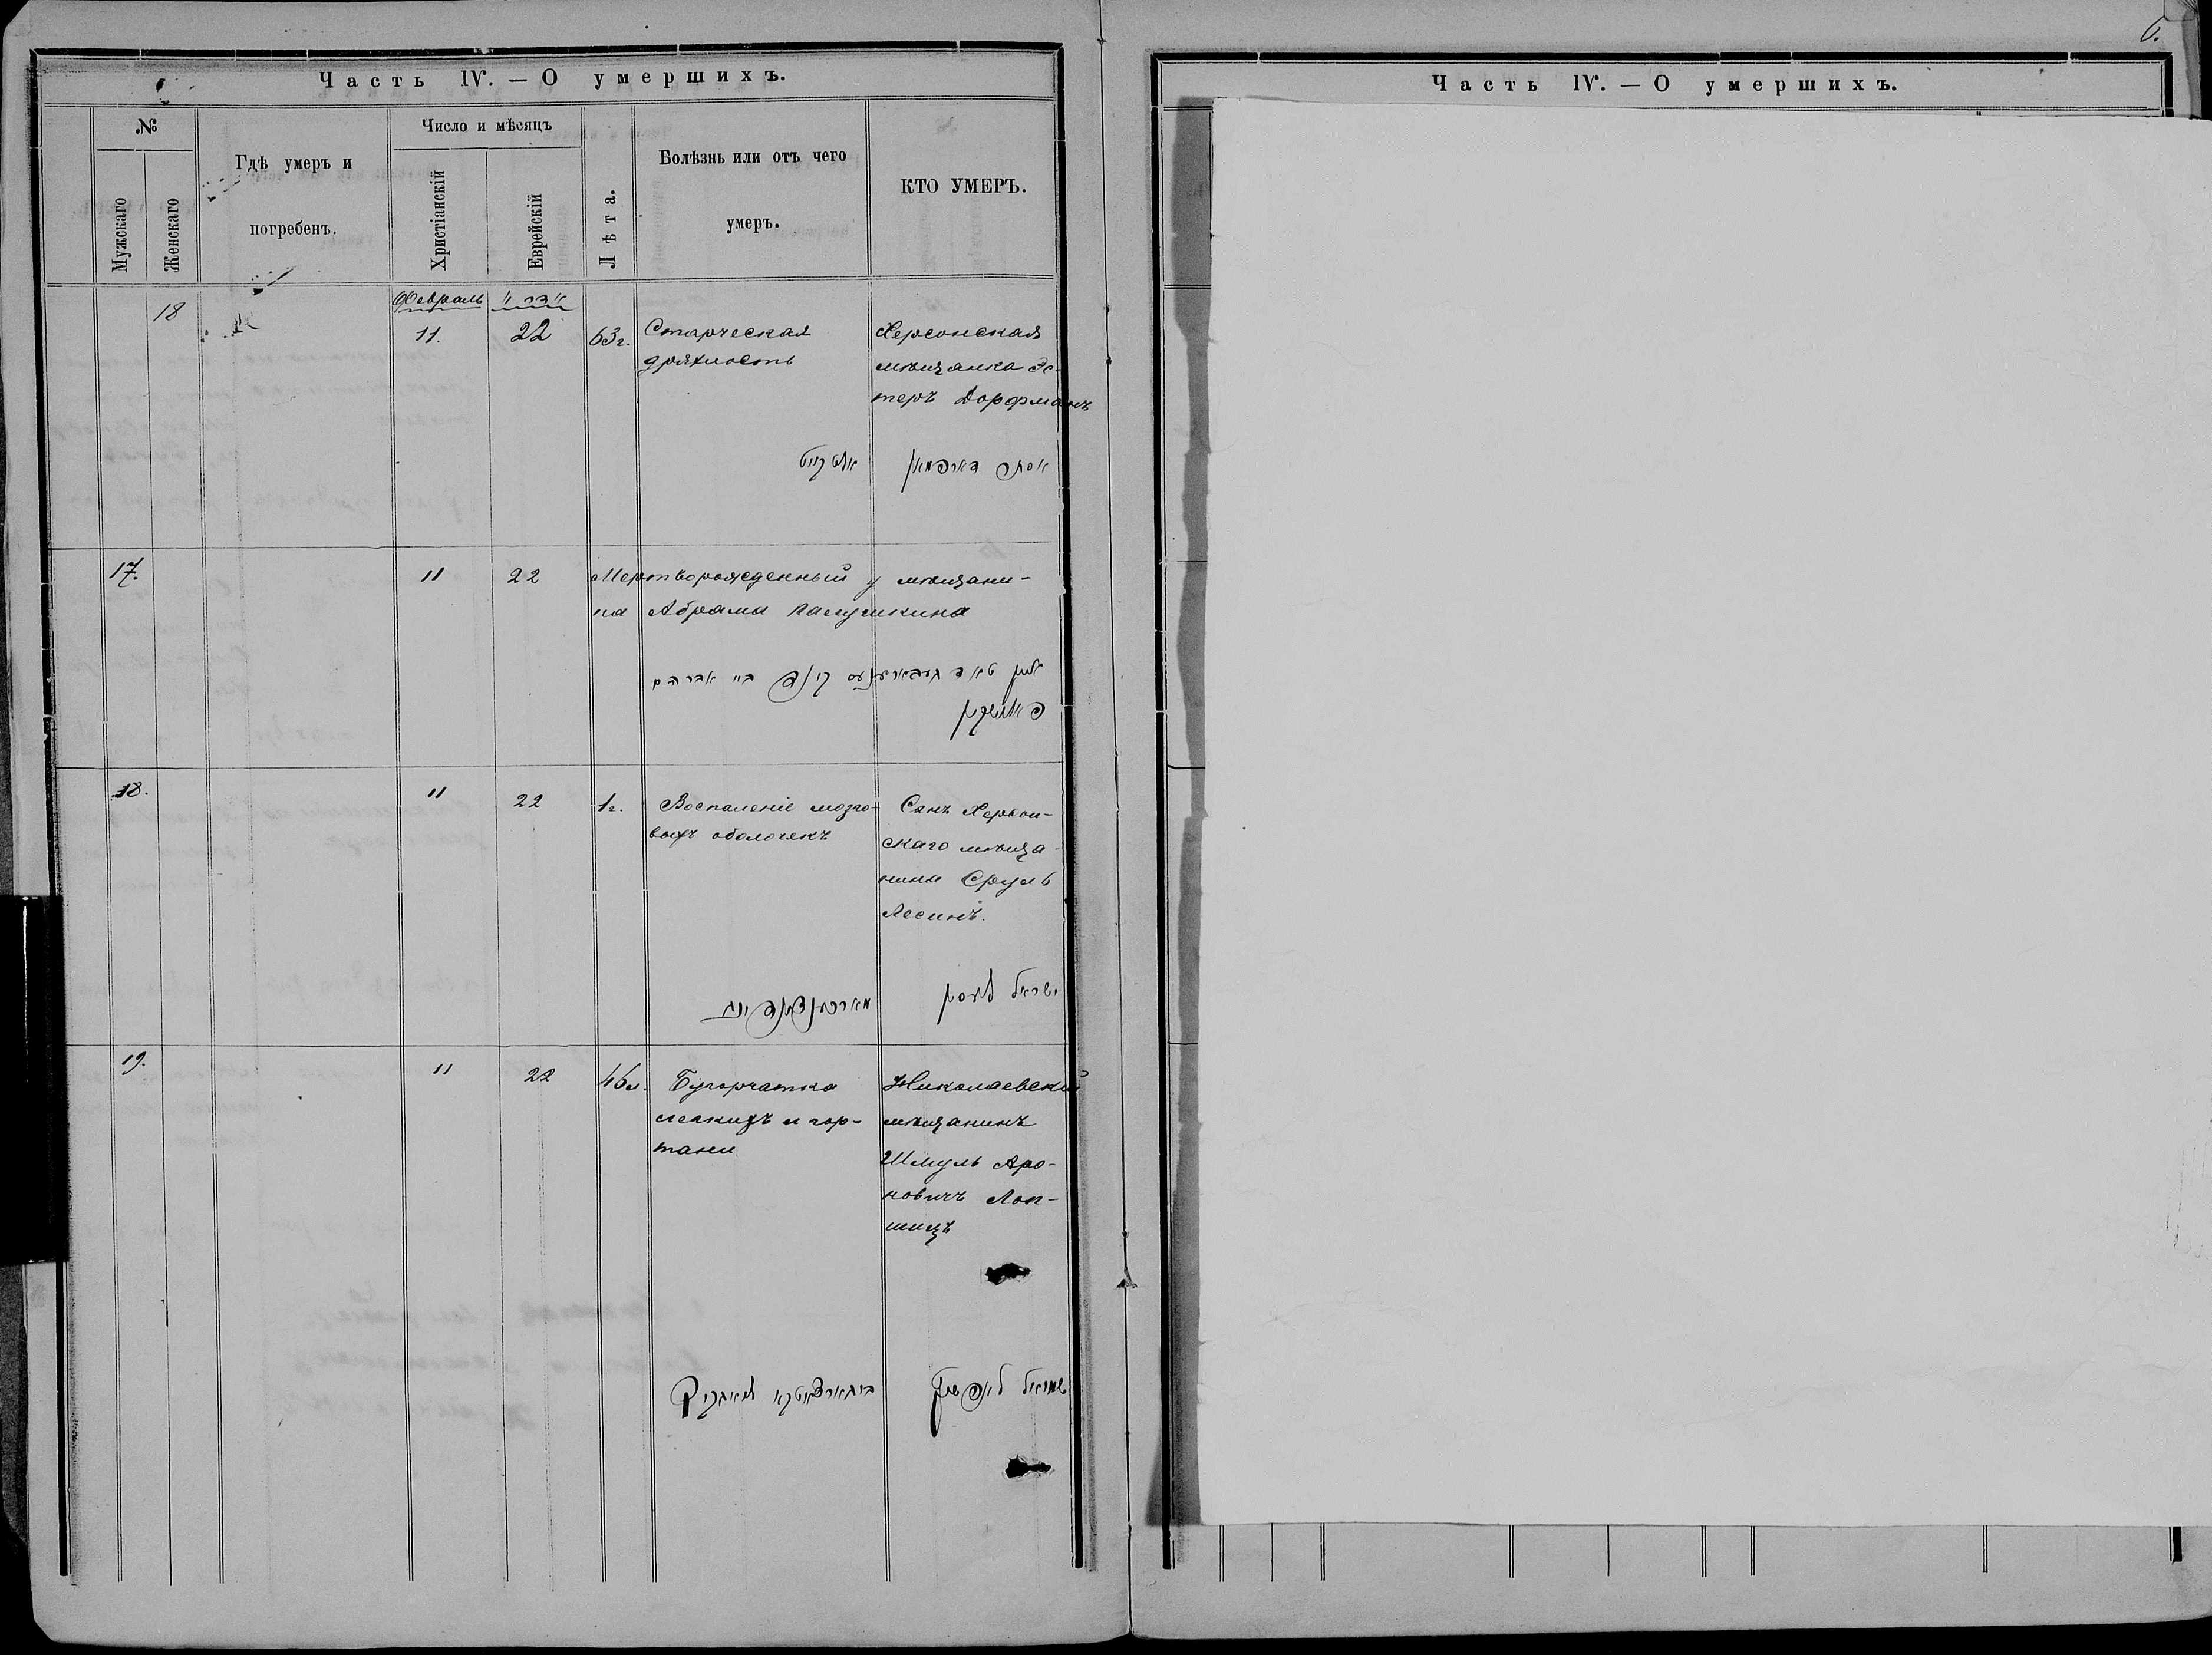 Часть IV. — О умершихъ.
№
Мужскаго
Женскаго
Гдѣ умеръ и
погребенъ.
Число и мѣсяцъ
Христіанскій
Еврейскій
Лѣта.
Болѣзнь или отъ чего
умеръ.
КТО УМЕРЪ.
Февраль
18
11.
22
63 г.
Старческая
дряхлость
Херсонская
мѣщанка Эс-
теръ Дорфманъ
אלטקייט
אסתר דארפמאן
17.
11
22
Мертворожденный у мѣщани-
на Абрама
טאד געבארענעס קינד ביי אברהם
18.
11
22
1 г.
Воспаленіе мозго-
выхъ оболочекъ
Сынъ Херсон-
скаго мѣща-
нина Сруль
Лесинъ.
ישראל לעסין
19.
11
22
46 л.
Бугорчатка
легкихъ и гор-
тани
Николаевскій
мѣщанинъ
Шмуль Аро-
новичъ Лоп-
шицъ
שמואל לאפשיץ
Часть IV. — О умершихъ.
6.